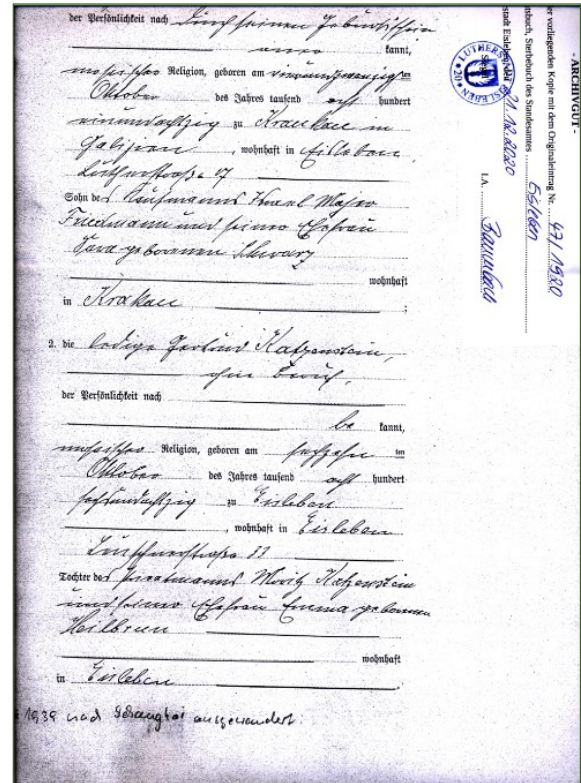 der Persönlichkeit nach durch seinen Geburtsschein
aner kannt,
mosaischer Religion, geboren am vierundzwanzigsten
Oktober des Jahres tausend acht hundert
einundachtzig zu Kraukau in
Galizien, wohnhaft in Eisleben
Lutherstraße 17
Sohn des Kaufmanns Israel Majer
Friedmann und seiner Ehefrau
Sara geborenen Schwarz
wohnhaft
in Krakau ;
2. die ledige Gertrud Katzenstein,
ohne Beruf,
der Persönlichkeit nach
be kannt,
mosaischer Religion, geboren am sechzehn ten
Oktober des Jahres tausend acht hundert
sechsundachtzig zu Eisleben
, wohnhaft in Eisleben
straße 33
Tochter des Privatmanns Moritz Katzenstein
und seiner Ehefrau Emma geborenen
Heilbrun
wohnhaft
in Eisleben.
1939 nach Schanghai ausgewandert
- ARCHIVGUT -
er vorliegenden Kopie mit dem Originaleintrag Nr. 47/1920
nsbuch, Sterbebuch des Standesamtes Eisleben
stadt Eisleben, den 21.12.2020
Siegel
I.A.
LUTHERSTADT EISLEBEN * 20 *